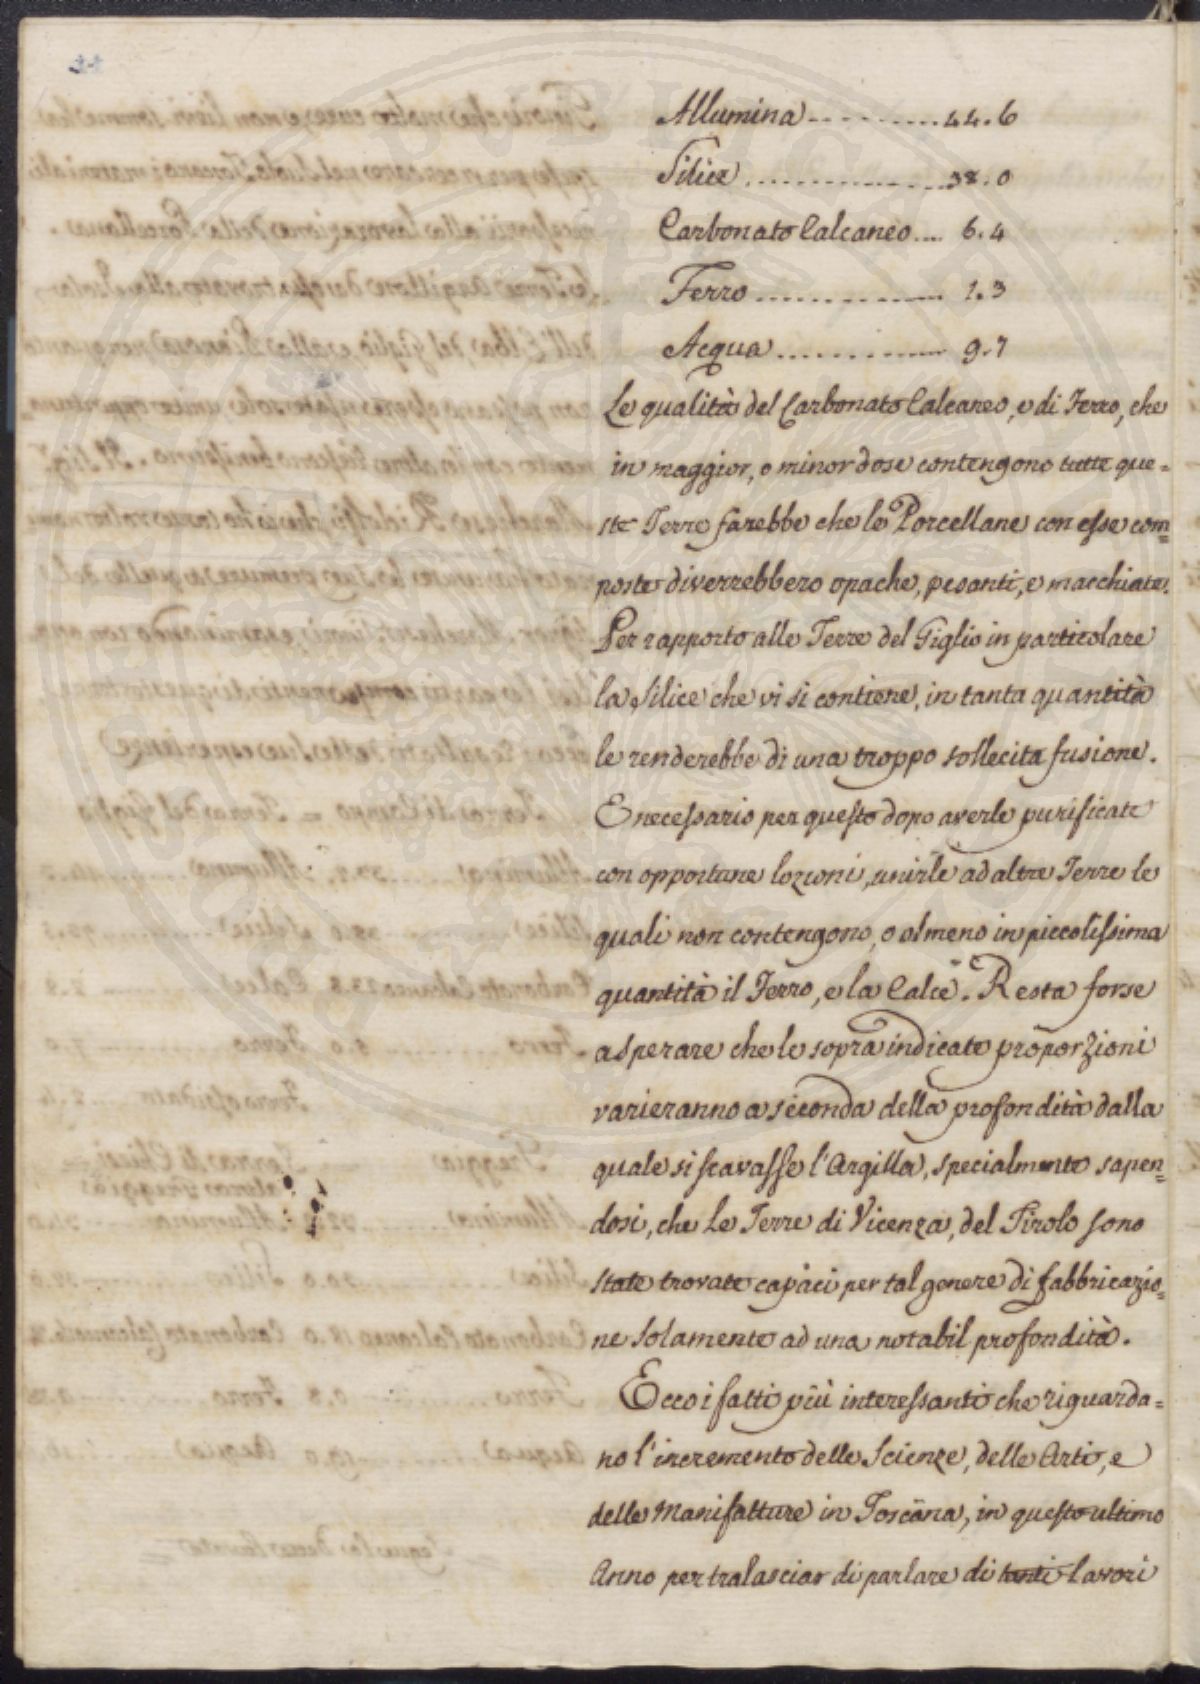 Allumina ---------- 44.6
Silice ................ 38.0
Carbonato Calcaneo.... 6.4
Ferro ................ 1.3
Acqua ............... 9.7
Le qualità del Carbonato Calcareo, e di Ferro, che
in maggior, o minor dose contengono tutte que=
ste Terre farebbe che le Porcellane con esse com=
poste diverrebbero opache, pesanti, e macchiate.
Per rapporto alle Terre del Giglio in particolare
la Silice che vi si contiene, in tanta quantità
le renderebbe di una troppo sollecita fusione.
E necessario per questo dopo averle purificate
con opportune lozioni, unirle ad altre Terre le
quali non contengono, o almeno in piccolissima
quantità il Ferro, e la Calce. Resta forse
a sperare che le sopra indicate proporzioni
varieranno a seconda della profondità dalla
quale si scavasse l'Argilla, specialmente sapen=
dosi, che le Terre di Vicenza, del Tirolo sono
state trovate capaci per tal genere di fabbricazio=
ne solamente ad una notabil profondità.
Ecco i fatti più interessanti che riguarda=
no l'incremento delle Scienze, delle Arti, e
delle Manifatture in Toscana, in questo ultimo
Anno per tralasciar di parlare di tanti lavori